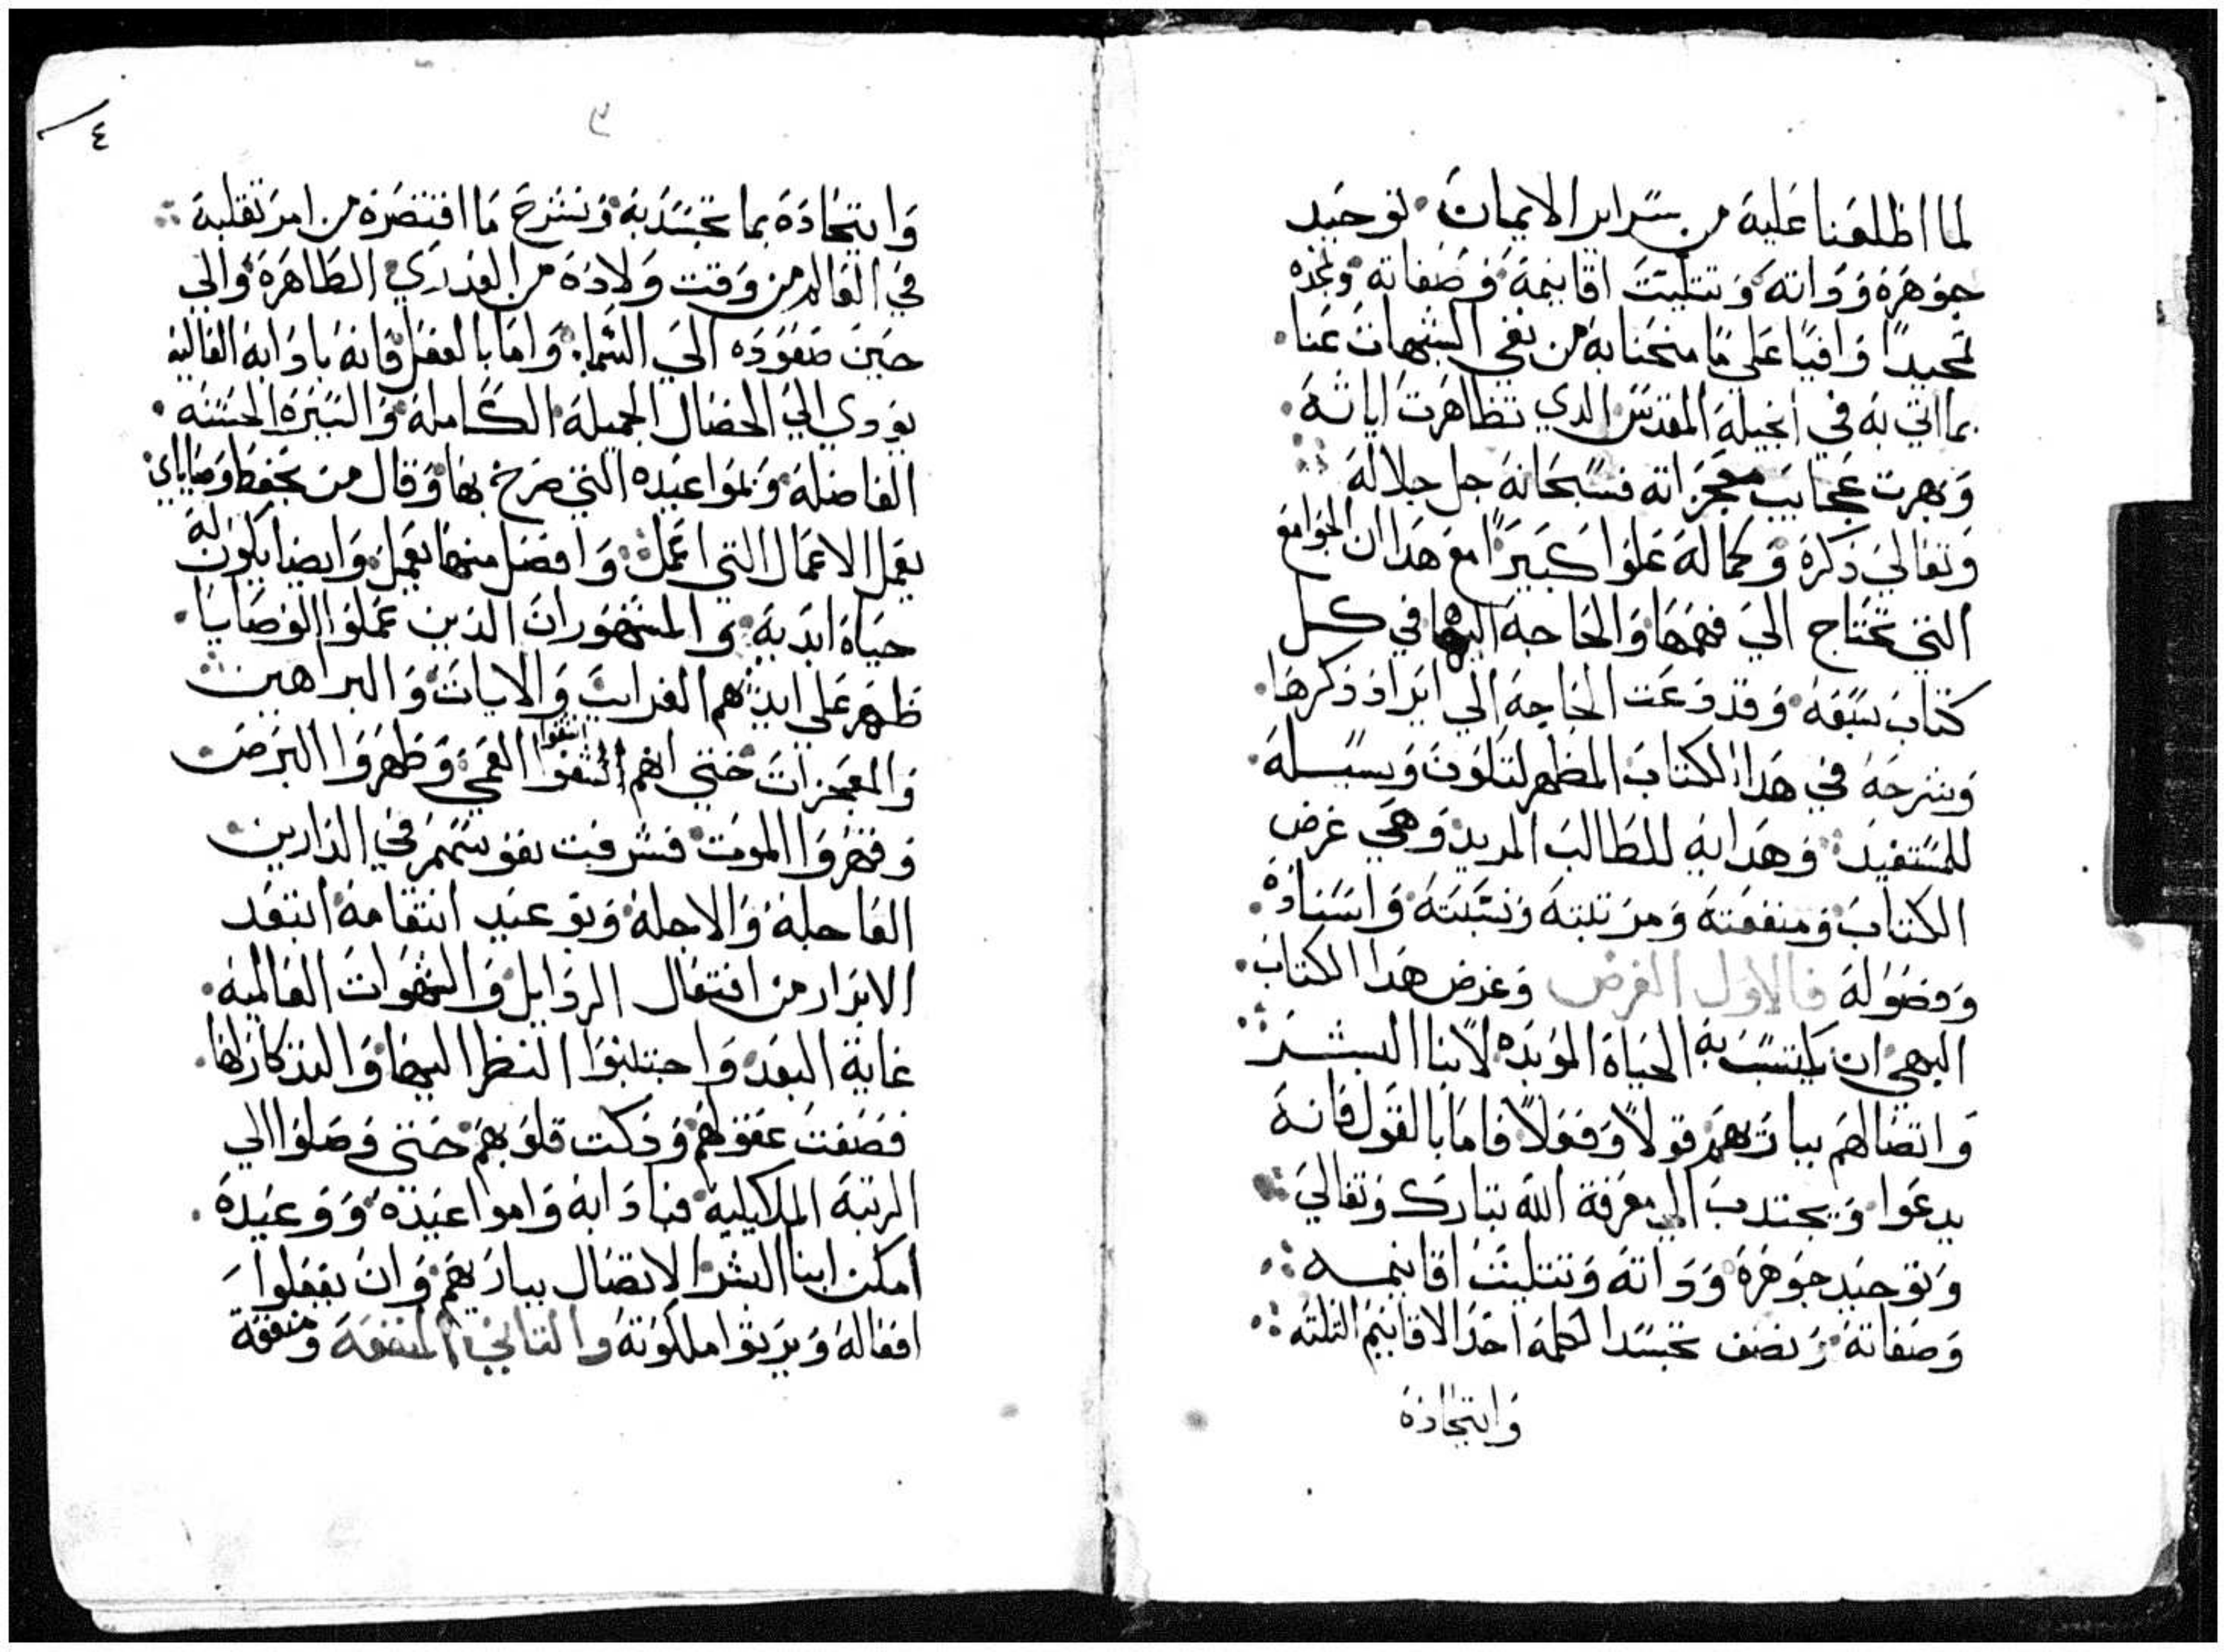 لما اطلعنا علية من سراير الايمان توحيد
جوهرة وذاتة وتتليت اقانيمة وصفاتة ونمجده
تمجيدًا وافيًا علي ما منحنا بة من نفي الشبهات عنا
بما اتي بة في انجيلة المقدس الدي تظاهرت اياتة
وبهرت عجايب معجزاتة فسبحانة جل جلالة
وتعالي ذكرة وكمالة علوا كبيرًا مع هدا ان الجوامع
التي تحتاج الي فهمها والحاجة اليها في كل
كتاب سبعة وقد دعت الحاجة الي ايراد ذكرها
وشرحة في هدا الكتاب المطهر لتكون وسيلة
للمستفيد وهداية للطالب المريد وهي غرض
الكتاب ومنفعتة ومرتبتة ونسبتة واسنادة
وفصولة فالاول الغرض وغرض هدا الكتاب
البهي ان يكتسب بة الحياة الموبده لابنا البشر
واتصالهم بباريهم قولًا وفعلًا فاما بالقول فانة
يدعوا ويجتدب الي معرفة الله تبارك وتعالي
وتوحيد جوهرة وذاتة وتتليت اقانيمه
وصفاتة ونصف تجسد الكلمة احد الاقانيم التلتة
واتحادة
٣
٤
واتحادة بما تجسد بة ونشرح ما اقتصرة من امر تقلبة
في العالم من وقت ولادة من العدري الطاهرة والي
حين صعوده الي السما واما بالعقل فانة باداىة العالية
يودي الي الخصال الجميلة الكاملة والسيرة الحسنه
الفاضلة وبمواعيده التي صرخ بها وقال من يحفظ وصاياي
يعمل الاعمال التي اعمل وافضل منها يعمل وايضا يكون لة
حياة ابدية والمشهور ان الدين عملوا الوصايا
ظهر علي ايديهم الغرايب والايات والبراهين
والمعجزات حتي انهم اشفوا العمي وطهروا البرص
وقهروا الموت فشرفت نفوسهم في الدارين
العاجلة والاجلة وبوعيد انتقامة ابتعد
الابرار من افتعال الردايل والشهوات العالمية
غاية البعد واجتنبوا النظر اليها والتدكار لها
فصفت عقولهم وذكت قلوبهم حتي وصلوا الي
الرتبة الملاكيلية فبادابة وامواعيدة ووعيدة
امكن ابنا البشر الاتصال بباريهم وان يفعلوا
افعالة ويرتوا ملكوتة والتاني المنفعة ومنفعة